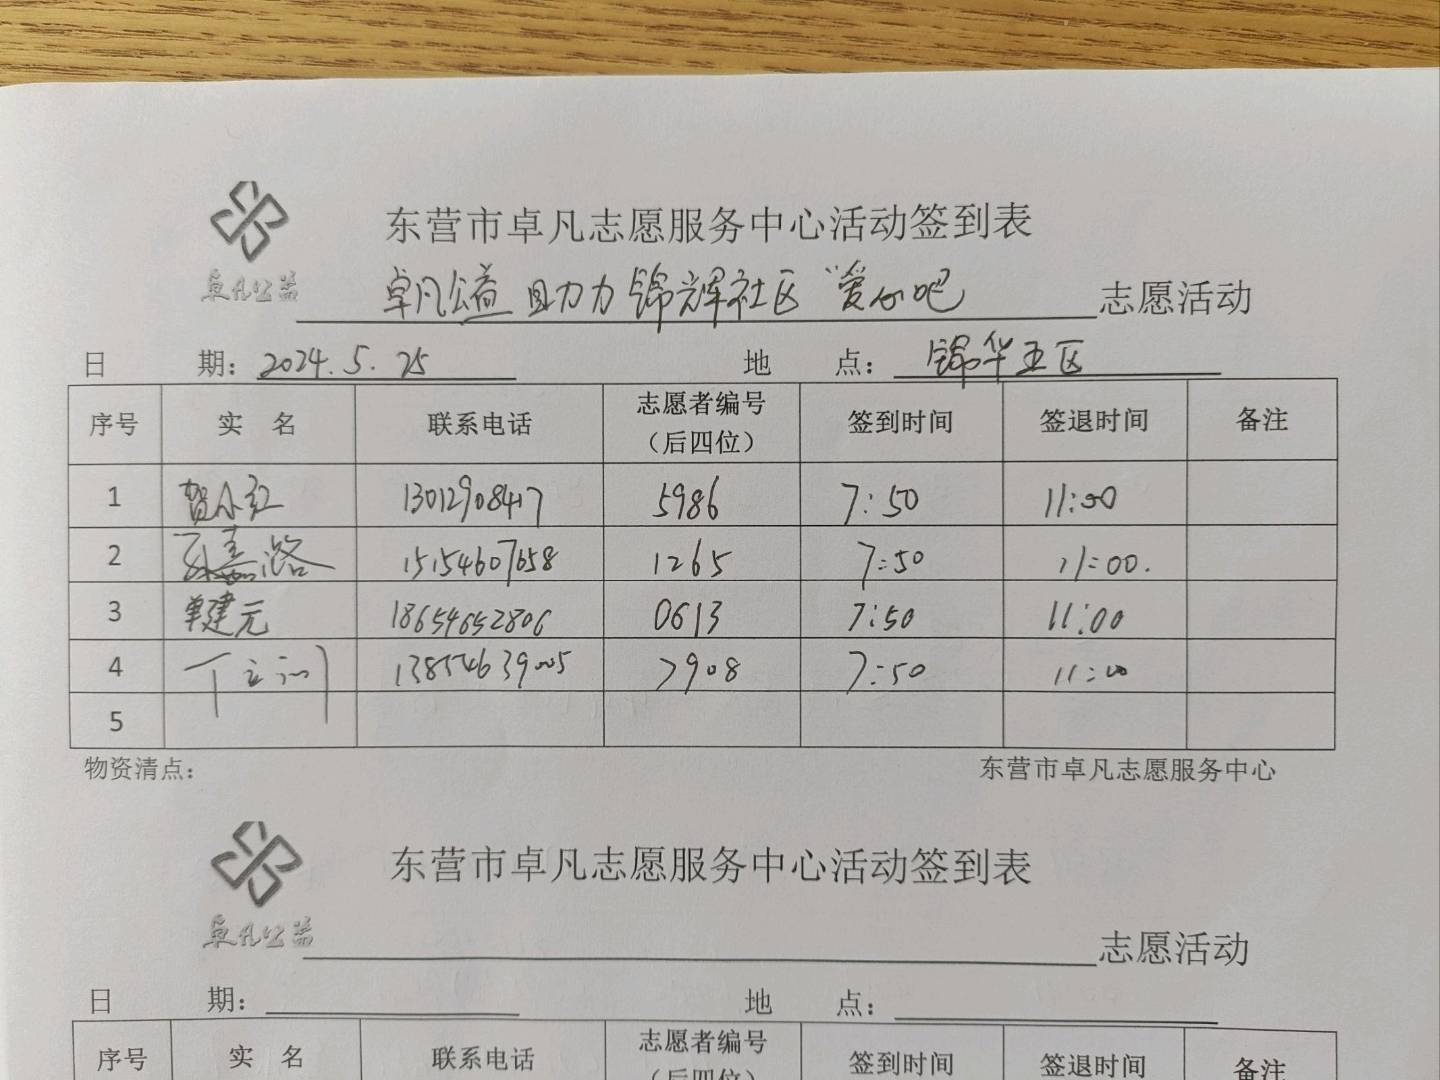 东营市卓凡志愿服务中心活动签到表
卓凡公益
卓凡公益 助力 锦辉社区 "爱心吧 志愿活动
日 期： 2024.5.25 地 点： 锦华五区
序号 实 名 联系电话 志愿者编号（后四位） 签到时间 签退时间 备注
1 贺小红 13012908417 5986 7:50 11:00
2 15154607658 1265 7:50 11:00.
3 单建元 18654652806 0613 7:50 11:00
4 13854639005 7908 7:50 11:00
5
物资清点： 东营市卓凡志愿服务中心
东营市卓凡志愿服务中心活动签到表
卓凡公益
志愿活动
日 期： 地 点：
序号 实 名 联系电话 志愿者编号（后四位） 签到时间 签退时间 备注